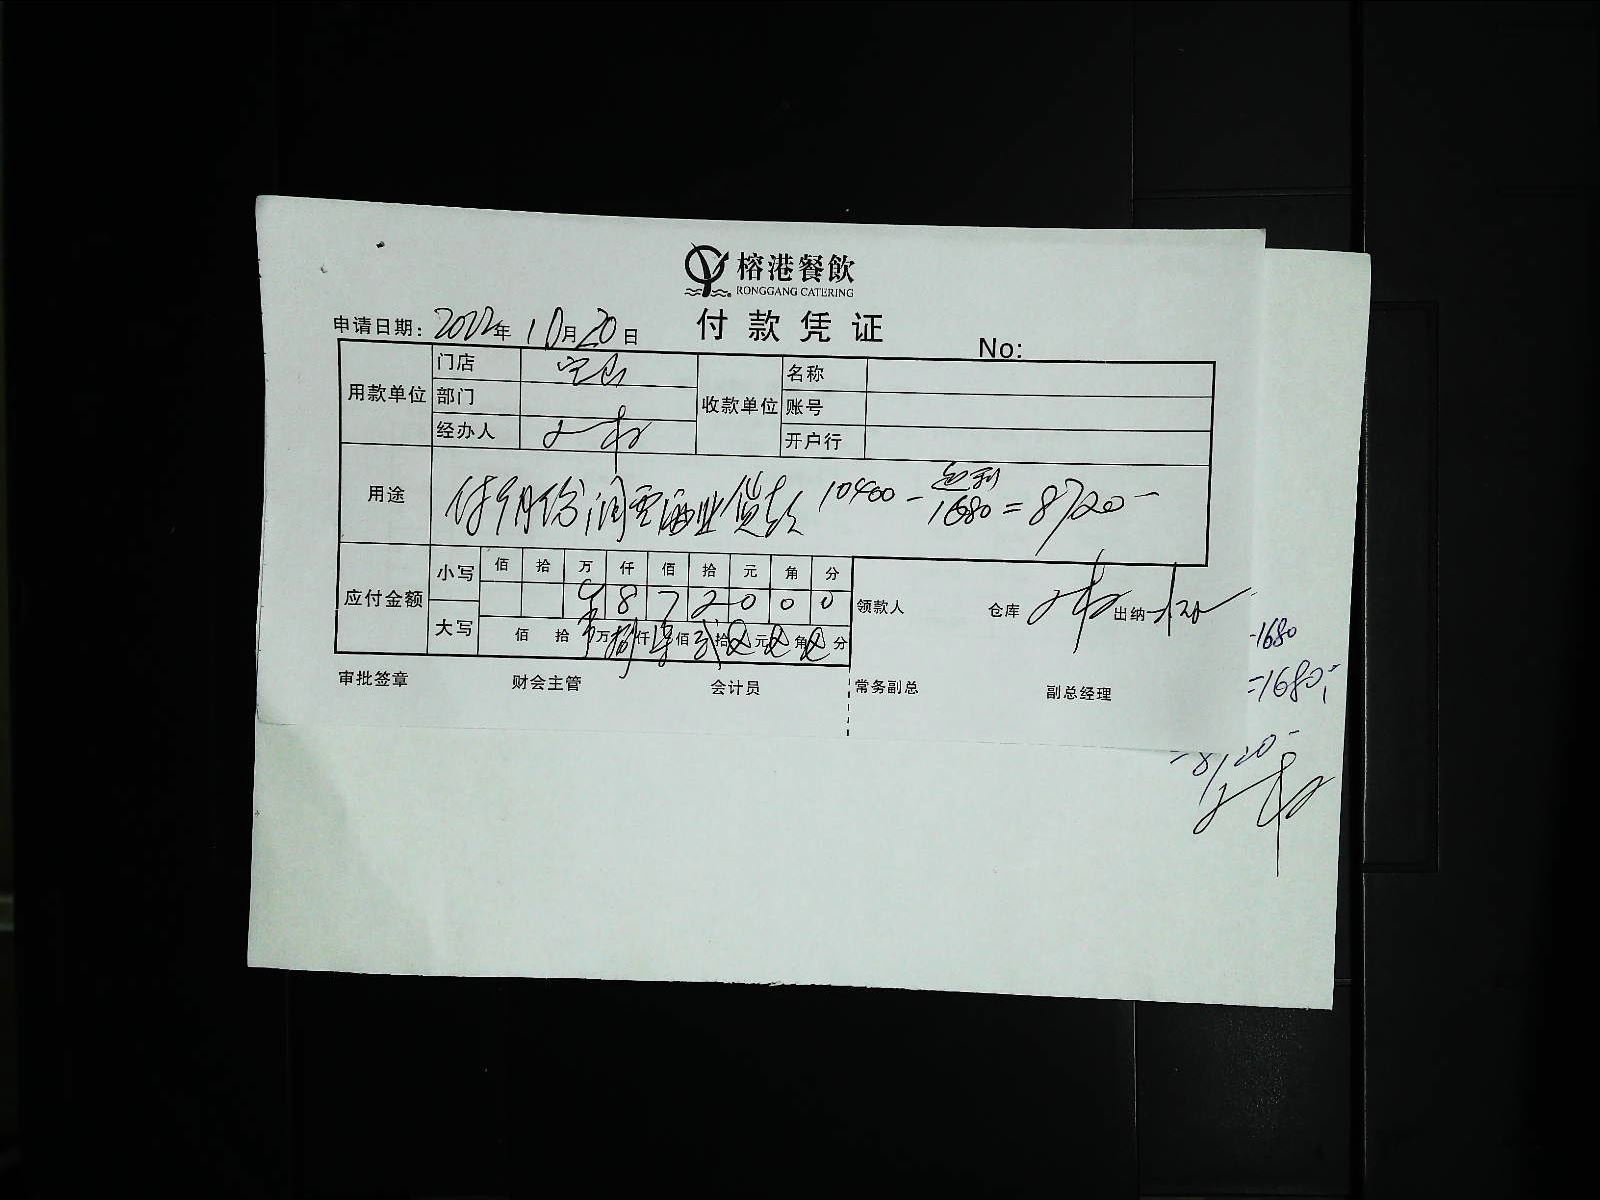 榕港餐飲
RONGGANG CATERING
付款凭证
申请日期：2022年10月20日
No:
用款单位 门店 宝山 收款单位 名称
部门 账号
经办人 开户行
用途 付9月份润云酒业货款 10400-1680=8720-
返利
应付金额 小写 佰 拾 万 仟 佰 拾 元 角 分
¥ 8 7 2 0 0 0
大写 佰 拾 万捌仟柒佰贰拾零元零角零分
领款人 仓库 出纳
审批签章 财会主管 会计员 常务副总 副总经理
-1680
=1680